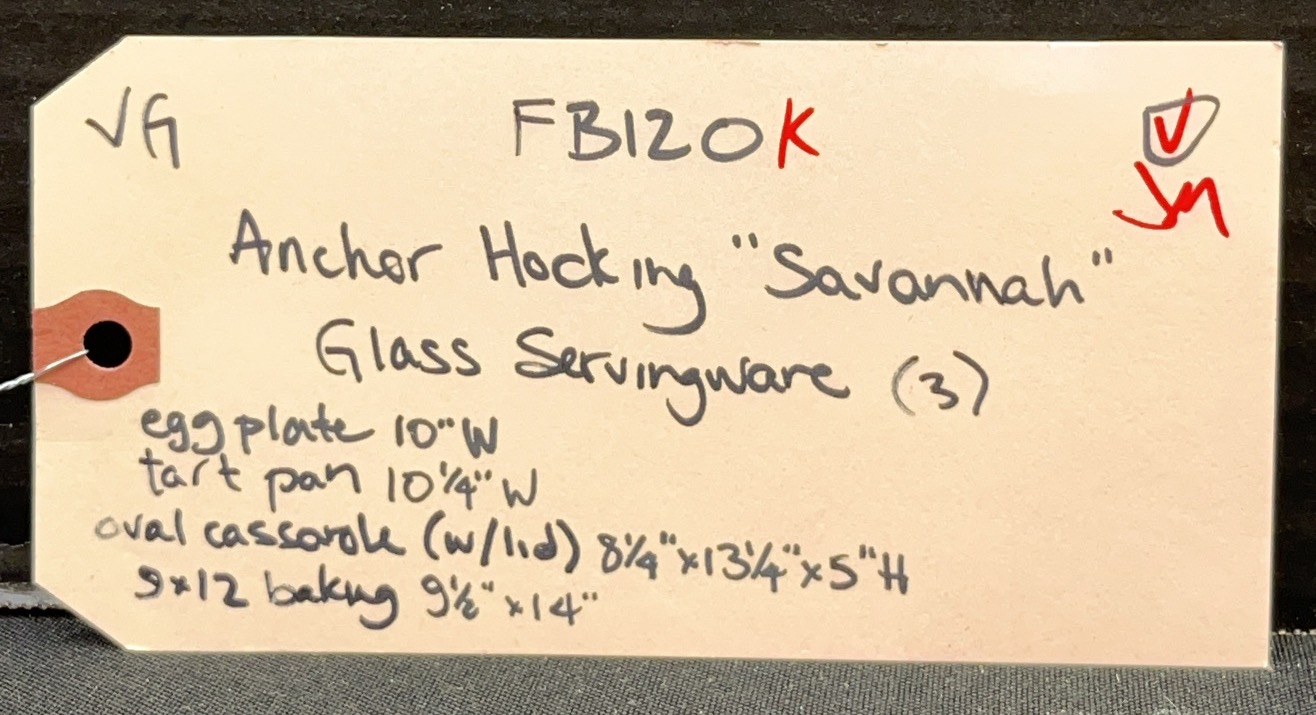 VG FB120K
Jm
Anchor Hocking "Savannah"
Glass Servingware (3)
egg plate 10" W
tart pan 10¼" W
oval cassorole (w/lid) 8¼" x 13¼" x 5" H
9x12 baking 9½" x 14"